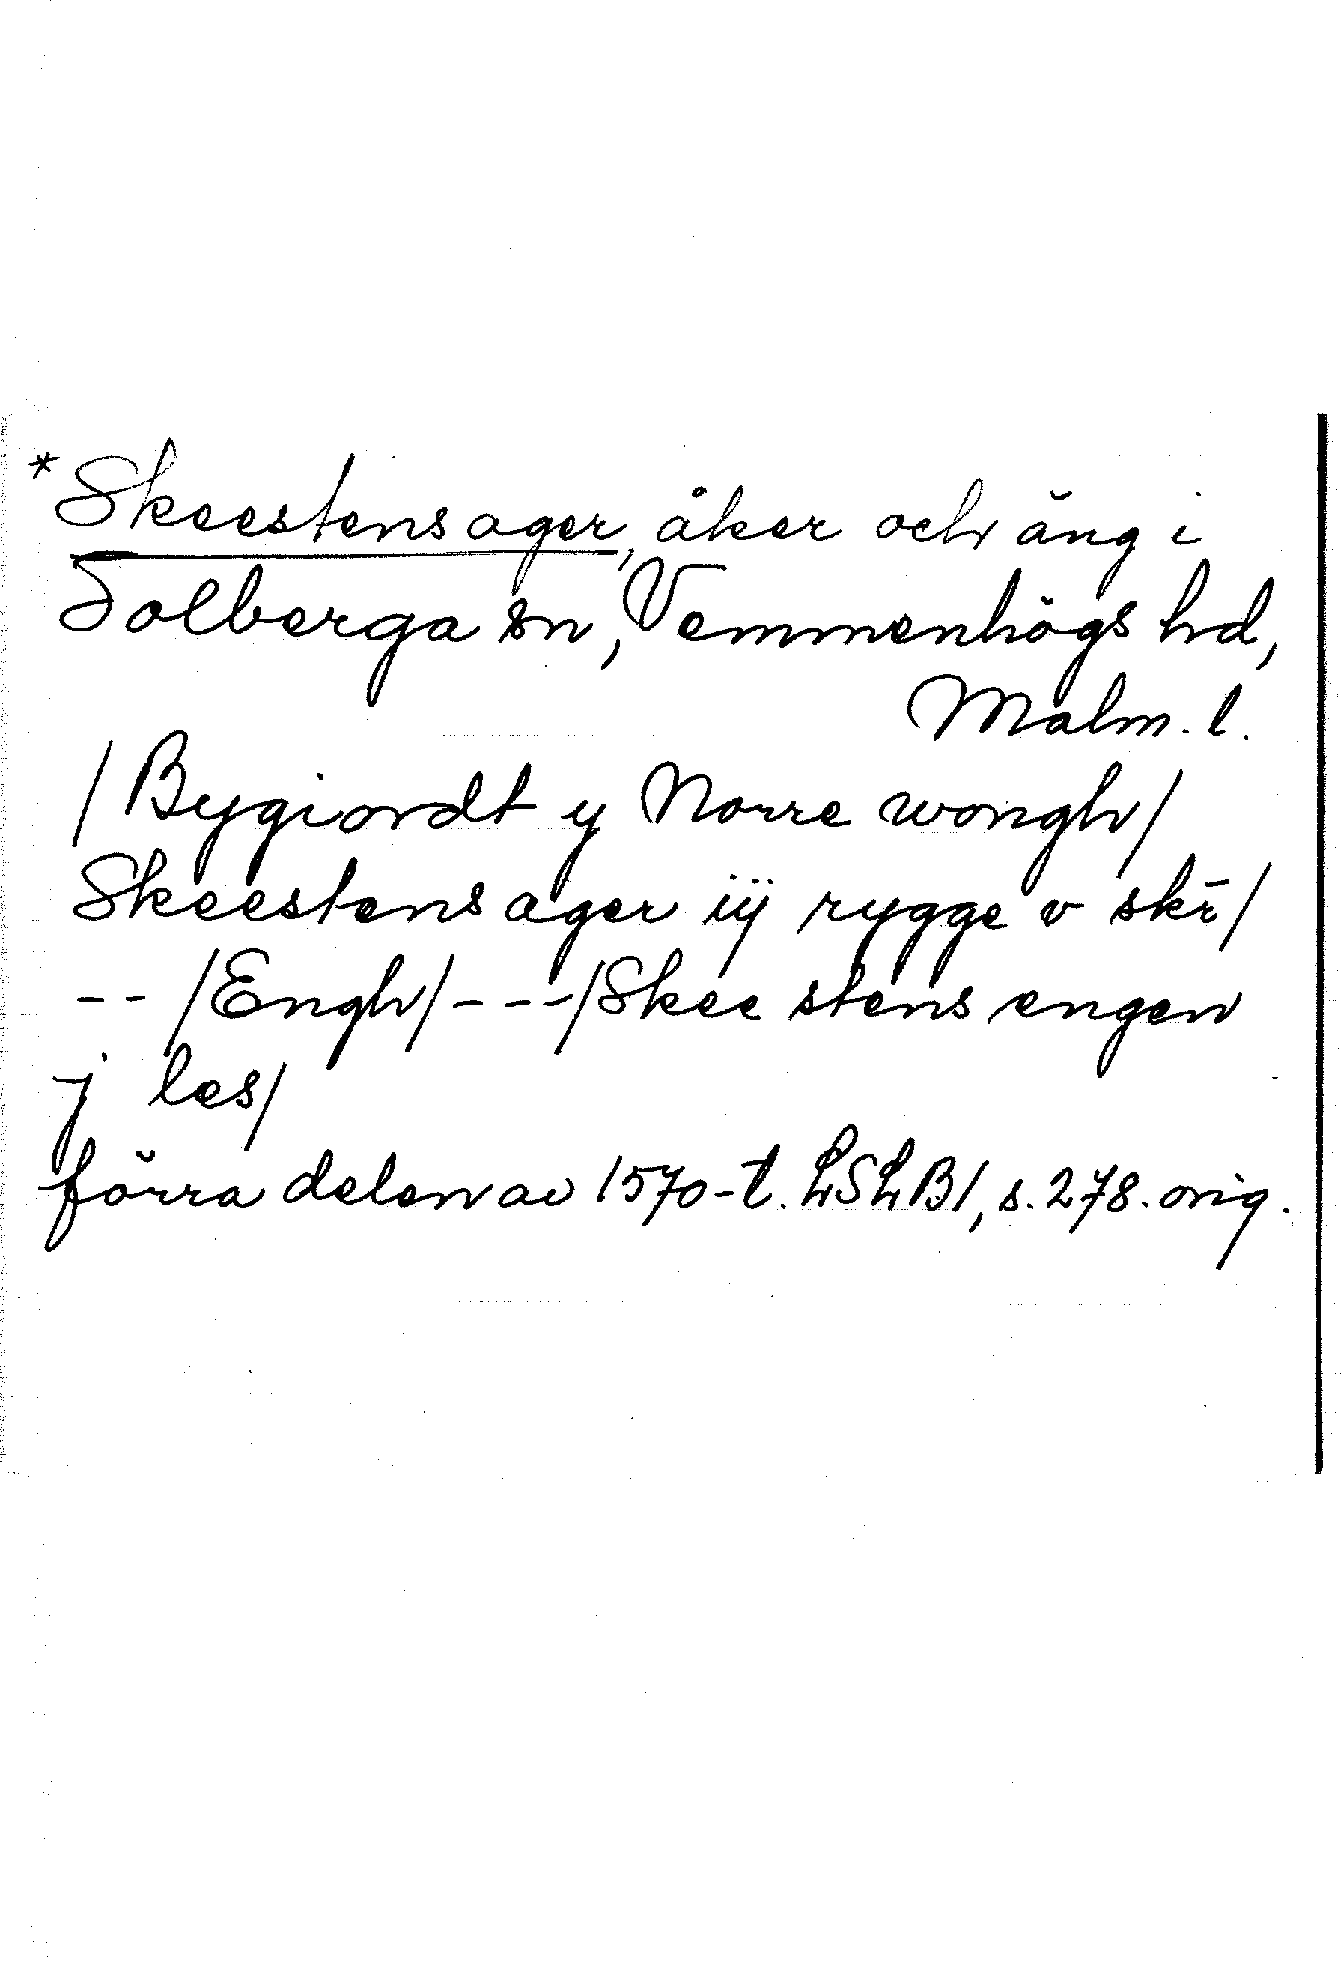 *Skeestens ager, åker och äng i
Solberga sn, Vemmenhögs hd,
Malm. l.
/Bygiordt y Norre wongh/
Skeestens ager iij rygge v skr̄/
-- /Engh/---/Skee stens engen
j les/
förra delen av 1570-t. LSLB1, s. 278. orig.